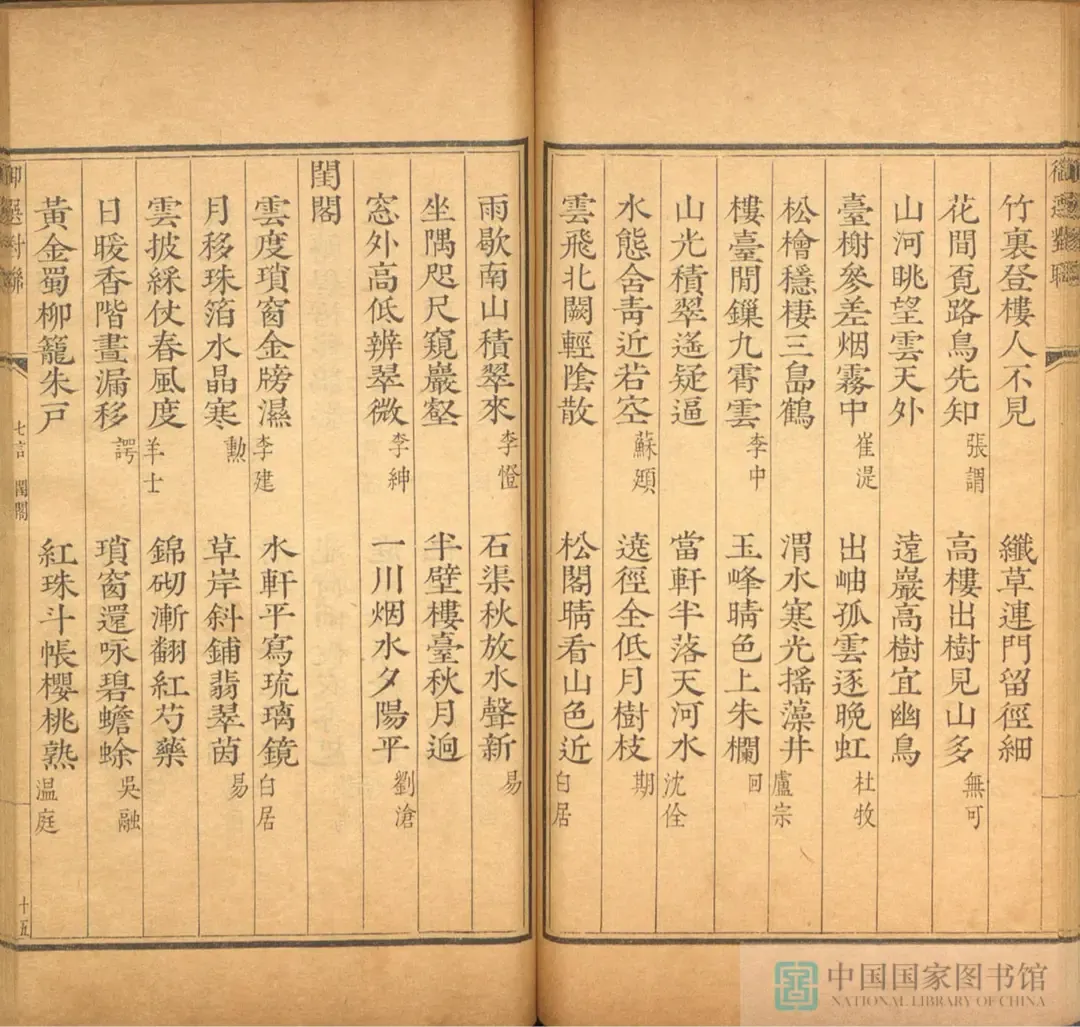 御選對聯
竹裏登樓人不見 纖草連門留徑細
花間覓路鳥先知 張謂 高樓出樹見山多 無可
山河眺望雲天外 遠巖高樹宜幽鳥
臺榭參差烟霧中 崔湜 出岫孤雲逐晚虹 杜牧
松檜穩棲三島鶴 渭水寒光搖藻井
樓臺閒鏁九霄雲 李中 玉峰晴色上朱欄 盧宗回
山光積翠遙疑逼 當軒半落天河水
水態含青近若空 蘇頲 遶徑全低月樹枝 沈佺期
雲飛北闕輕陰散 松閣晴看山色近
雨歇南山積翠來 李憕 石渠秋放水聲新 白居易
坐隅咫尺窺巖壑 半壁樓臺秋月迥
窓外高低辨翠微 李紳 一川烟水夕陽平 劉滄
閨閣
雲度瑣窗金牓濕 水軒平寫琉璃鏡
月移珠箔水晶寒 李建勲 草岸斜鋪翡翠茵 白居易
雲披綵仗春風度 錦砌漸翻紅芍藥
日暖香階晝漏移 羊士諤 瑣窗還咏碧蟾蜍 吳融
黃金蜀柳籠朱戸 紅珠斗帳櫻桃熟 温庭
御選對聯 七言 閨閣 十五
中国国家图书馆
NATIONAL LIBRARY OF CHINA